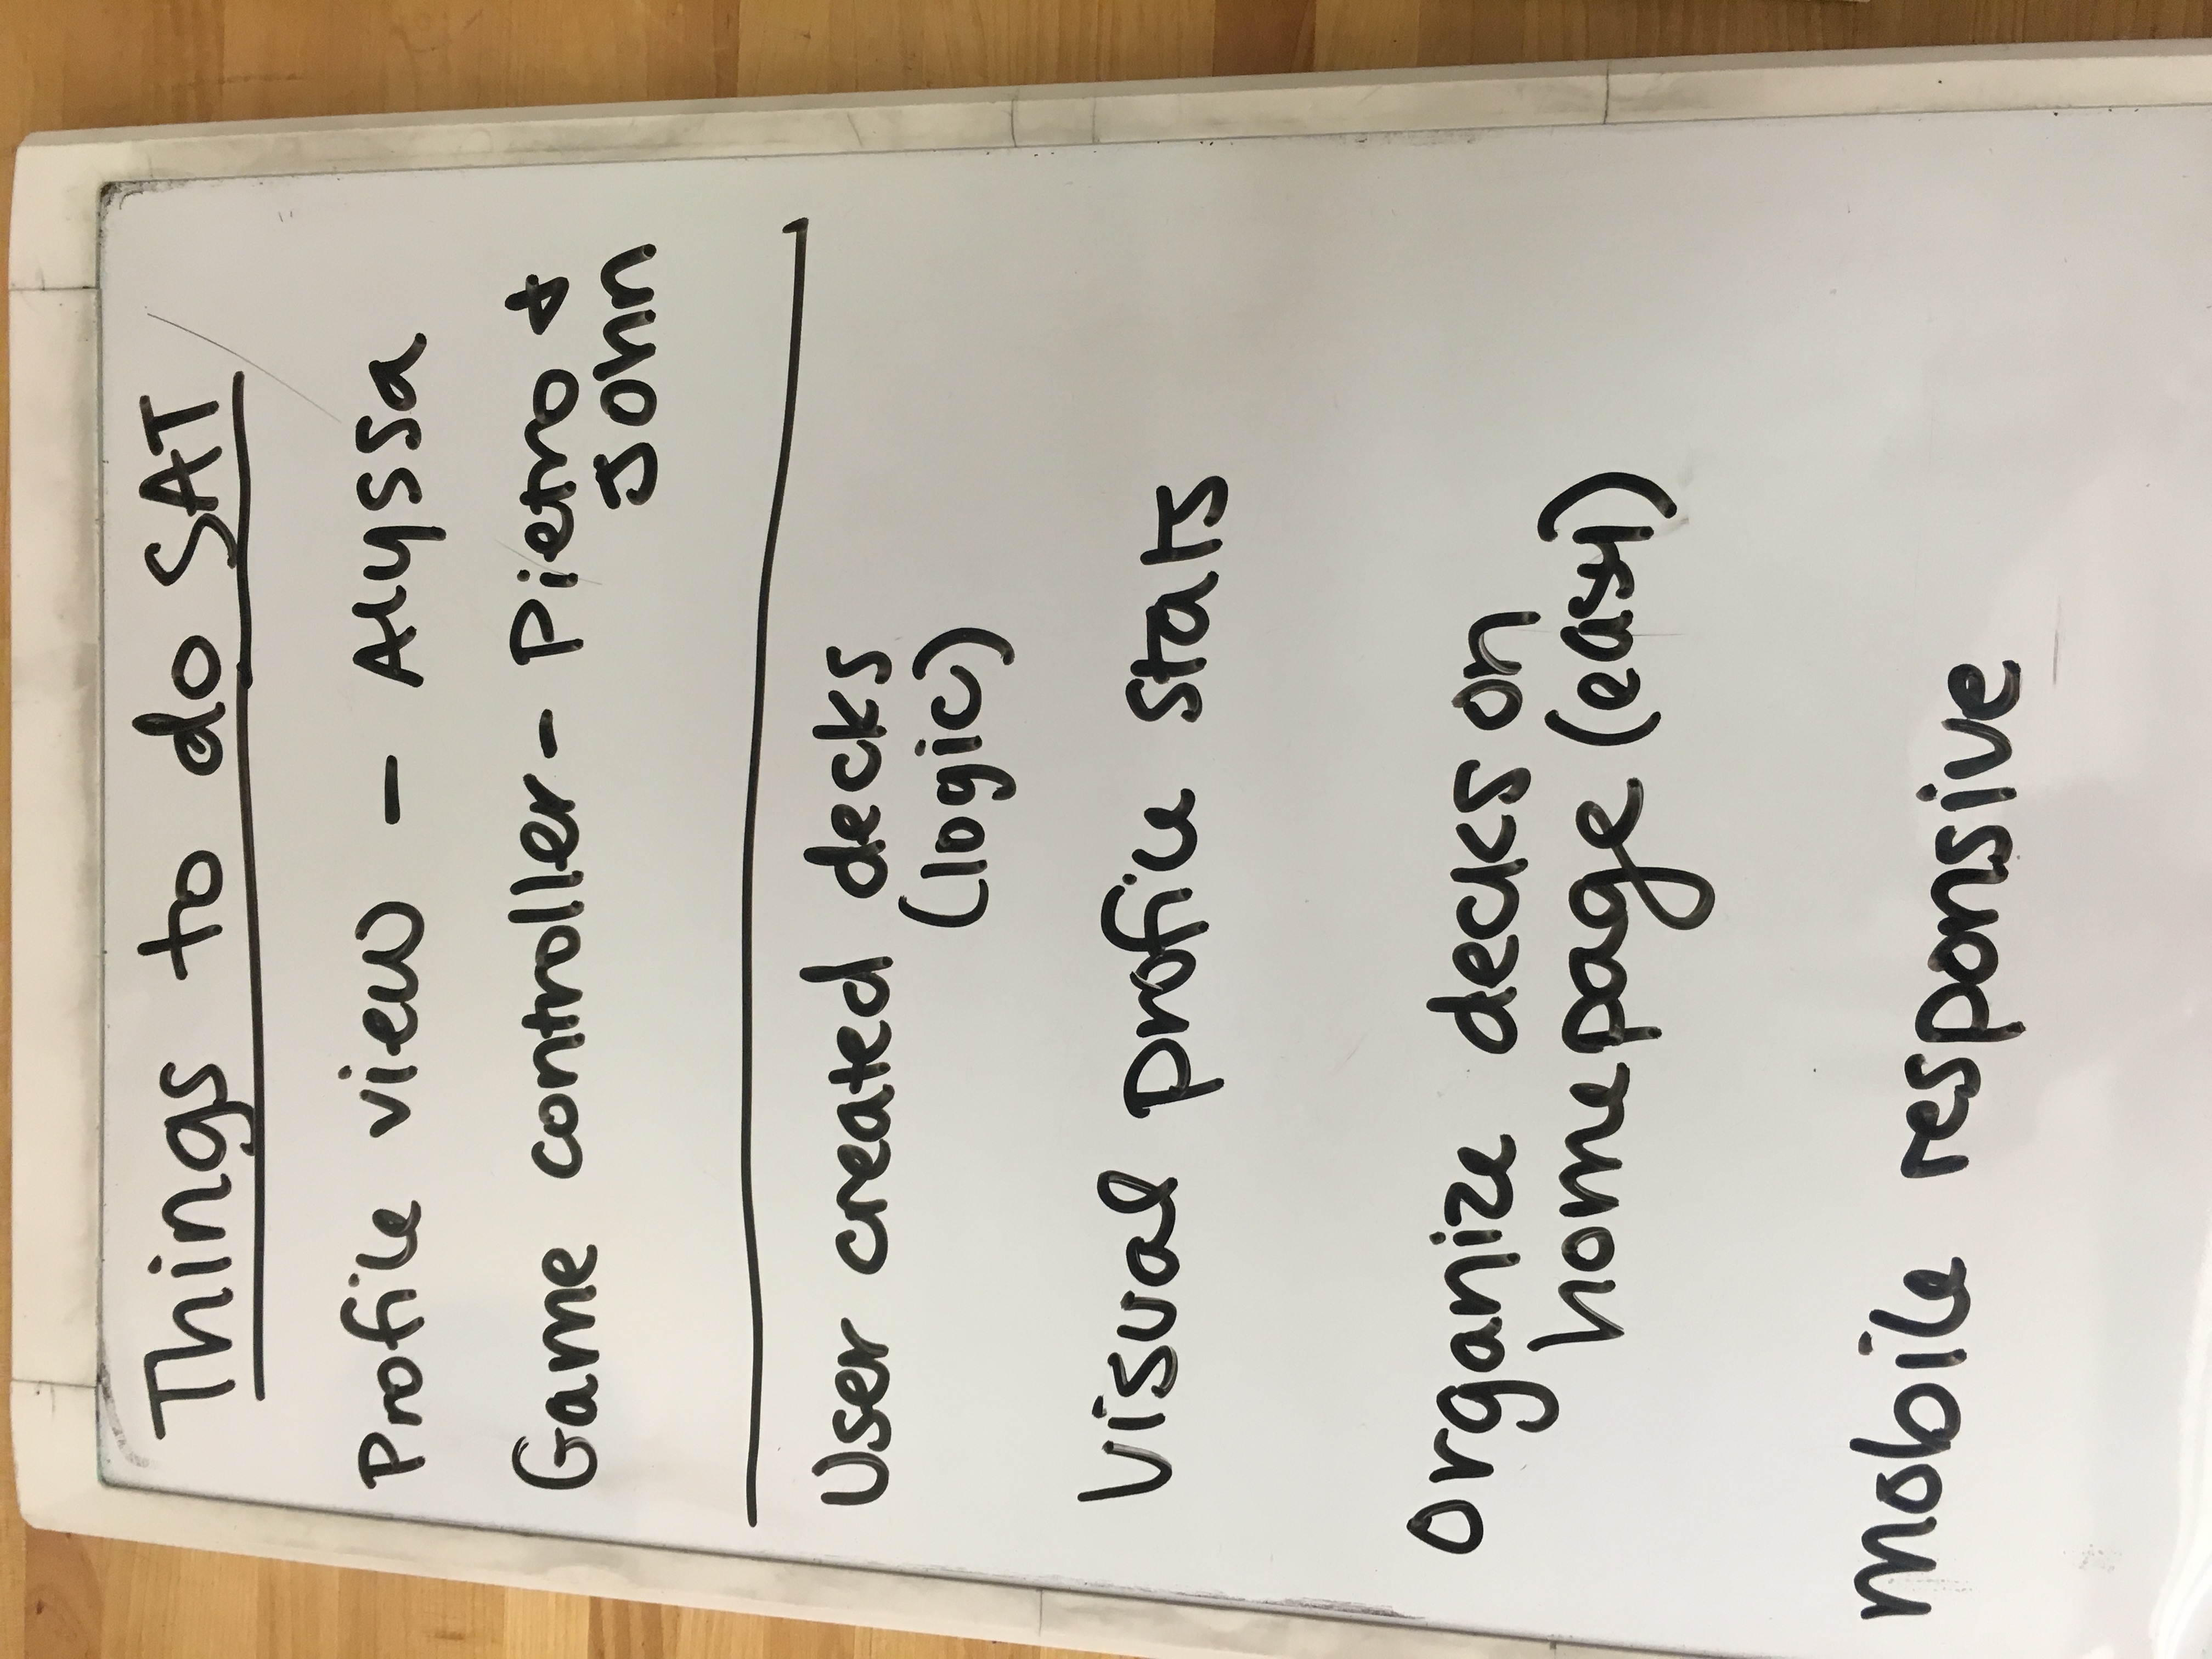 Things to do SAT
Profile view - Alyssa
Game controller - Pietro &
John
User created decks
(logic)
Visual profile stats
Organize decks on
homepage (easy)
mobile responsive